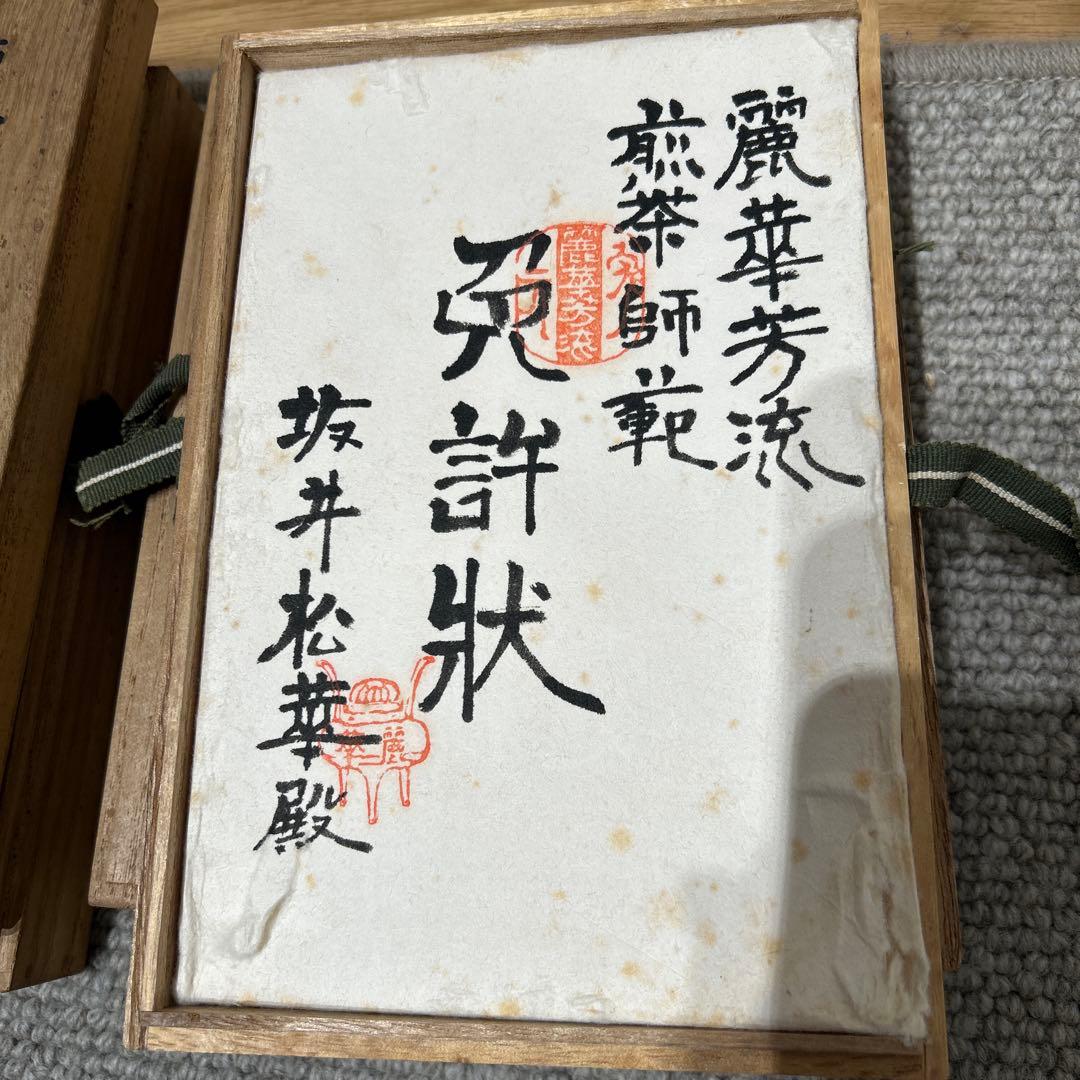 麗華芳流
煎茶師範
免許状
坂井松華殿
麗華芳流
麗華